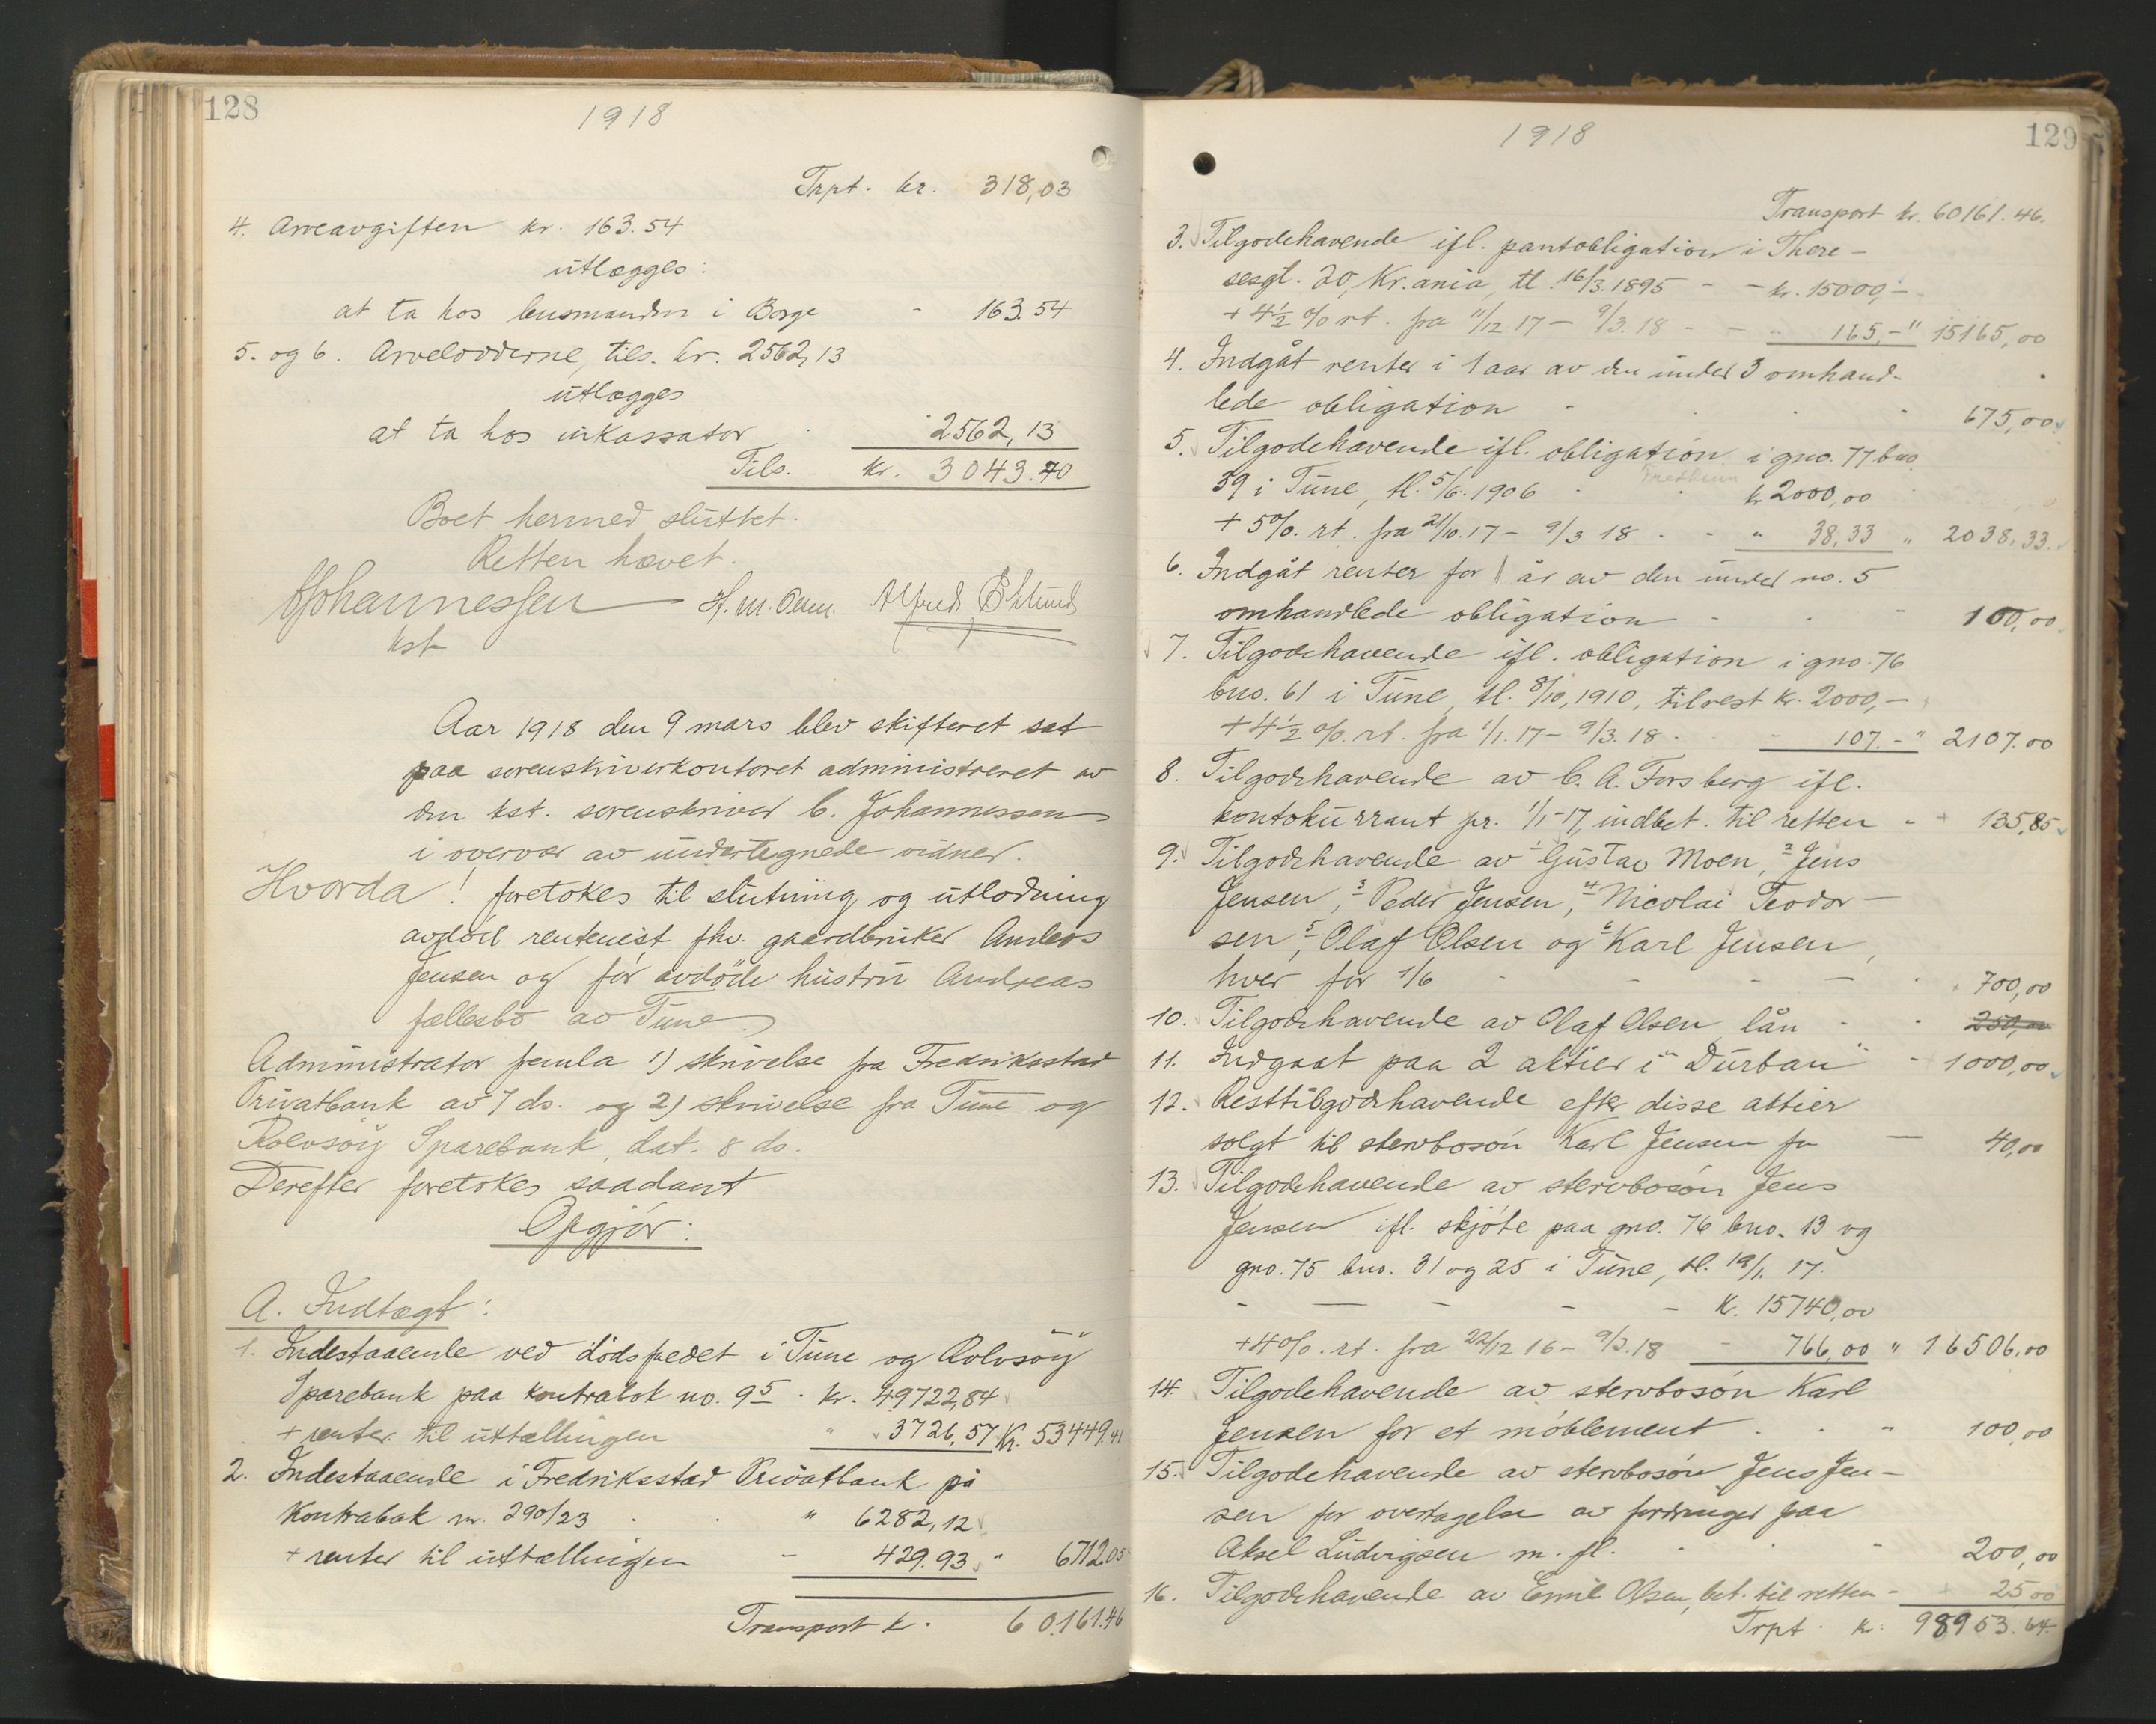 128
1918
Trpt. kr. 318,03
4. Arveavgiften kr. 163.54
utlægges:
at ta hos lensmanden i Borge - 163.54
5. og 6. Arveloddene, tils. kr. 2562,13
utlægges
at ta hos inkassator - 2562,13
Tils. kr. 3043.70
Boet hermed sluttet.
Retten hævet.
CJohannessen H. M. Olsen. Alfred Eklund
kst
Aar 1918 den 9 mars blev skifteret sat
paa sorenskriverkontoret administreret av
den kst. sorenskriver C. Johannessen
i overvær av undertegnede vidner.
Hvorda! foretokes til slutning og utlodning
avdöd rentenist fhv. gaardbruker Andreas
Jensen og för avdöde hustru Andreas
fællesbo av Tune.
Administrator fremla 1) skrivelse fra Fredriksstad
Privatbank av 7 ds. og 2) skrivelse fra Tune og
Rolvsöy Sparebank, dat. 8 ds.
Derefter foretokes saadant
Opgjör:
A. Indtægt:
1. Indestaaende ved dödsfaldet i Tune og Rolvsöy
Sparebank paa kontrabok no. 95 . kr. 49722,84
+ renter til uttællingen " 3726,57 Kr. 53449.41
2. Indestaaende i Fredriksstad Privatbank på
Kontrabok nr. 290/23 . . " 6282,12
+ renter til uttællingen - 429.93 " 6712.05
Transport kr. 60.161.46
129
1918
Transport kr. 60161.46.
3. Tilgodehavende ifl. pantobligation i There-
sesgt. 20, Kr.ania, tl. 16/3.1895 - - kr. 15000,-
+ 4½ % rt. fra 11/12 17 - 9/3.18 - - " 165,- " 15165,00
4. Indgåt renter i 1 aar av den under 3 omhand-
lede obligation - 675,00
5. Tilgodehavende ifl. obligation i gno. 77 bno.
59 i Tune, tl. 5/6.1906 kr 2000,00
+ 5%. rt. fra 21/10.17 - 9/3 18 . - " 38,33 " 2038,33.
6. Indgåt renter for 1 år av den under no. 5
omhandlede obligation - - 100,00
7. Tilgodehavende ifl. obligation i gno. 76
bno. 61 i Tune, tl. 8/10, 1910, tilrest kr. 2000,-
+ 4½ %. rt. fra 1/1.17 - 9/3.18 . - 107.- " 2107.00
8. Tilgodehavende av C. A. Forsberg ifl.
kontokurrant pr. 1/1-17, indbet. til retten - + 135,85
9. Tilgodehavende av 1 Gustav Moen, 2 Jens
Jensen, 3 Peder Jensen, 4 Nicolai Teodor-
sen, 5 Olaf Olsen og 6 Karl Jensen,
hver for 1/6 - - - - 700,00
10. Tilgodehavende av Olaf Olsen lån - - 250,00
11. Indgaat paa 2 aktier i "Durban" - 1000,00
12. Resttilgodehavende efter disse aktier
solgt til stervbosön Karl Jensen for - 40,00
13. Tilgodehavende av stervbosön Jens
Jensen ifl. skjöte paa gno. 76 bno. 13 og
gno. 75 bno. 31 og 25 i Tune, tl. 19/1. 17.
- - - - - k. 15740,00
+ 4%. rt. fra 22/12 16 - 9/3.18 - 766,00 " 16506,00
14. Tilgodehavende av stervbosön Karl
Jensen for et möblement . . " 100,00
15. Tilgodehavende av stervbosön Jens Jen-
sen for overtagelse av fordringer paa
Aksel Ludvigsen m. fl. - - - 200,00
16. Tilgodehavende av Emil Olsen, bet. til retten - + 25 00
Trpt. kr. 98953.64.